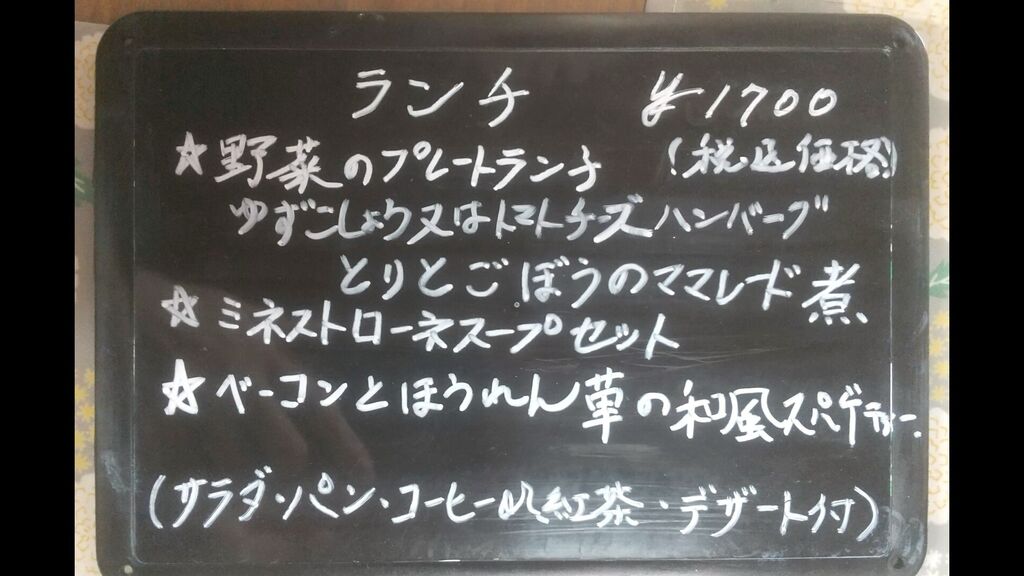 ランチ ¥1700
☆野菜のプレートランチ (税込価格)
ゆずこしょう又はトマトチーズハンバーグ
とりとごぼうのママレード煮
☆ミネストローネスープセット
☆ベーコンとほうれん草の和風スパゲティー.
(サラダ・パン・コーヒーor紅茶・デザート付)